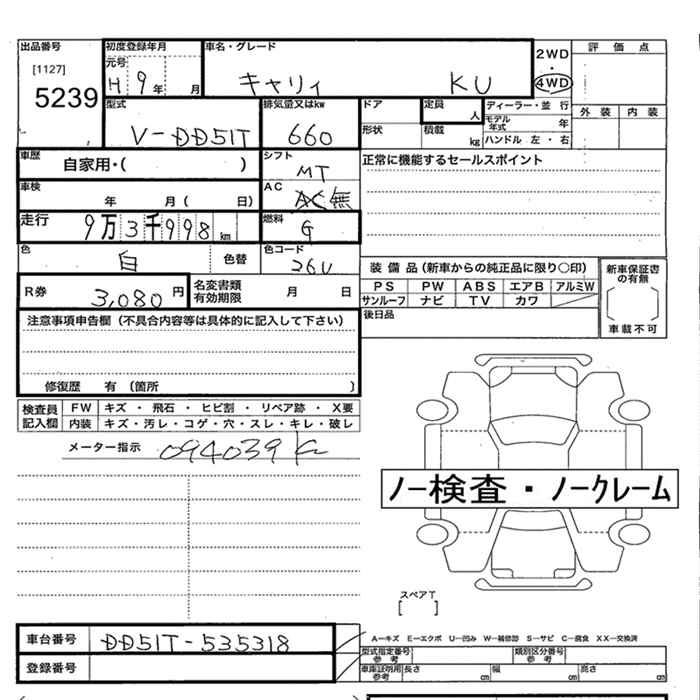 出品番号 初度登録年月 車名・グレード 評価点
[1127] 元号 2WD
5239 H 9年 月 キャリィ KU ・ 4WD
型式 排気量又はkw ドア 定員 人 ディーラー・並行 外装 内装
V-DD51T 660 形状 積載 kg モデル年式 年
ハンドル 左・右
車歴 自家用・( ) シフト MT 正常に機能するセールスポイント
車検 年 月( 日) AC AC 無
走行 9万3千998km 燃料 G
色 白 色替 色コード 26U
装備品(新車からの純正品に限り○印) 新車保証書の有無
R券 3,080円 名変書類有効期限 月 日 PS PW ABS エアB アルミW
サンルーフ ナビ TV カワ
[ ]
車載不可
注意事項申告欄(不具合内容等は具体的に記入して下さい) 後日品
修復歴 有(箇所 )
検査員記入欄 FW キズ・飛石・ヒビ割・リペア跡・X要
内装 キズ・汚レ・コゲ・穴・スレ・キレ・破レ
メーター指示 094039 K
ノー検査・ノークレーム
スペアT
[ ]
車台番号 DD51T-535318
A-キズ E-エクボ U-凹み W-補修跡 S-サビ C-腐食 XX-交換済
登録番号 型式指定番号 参考 類別区分番号 参考
車庫証明用 参考 長さ cm 幅 cm 高さ cm